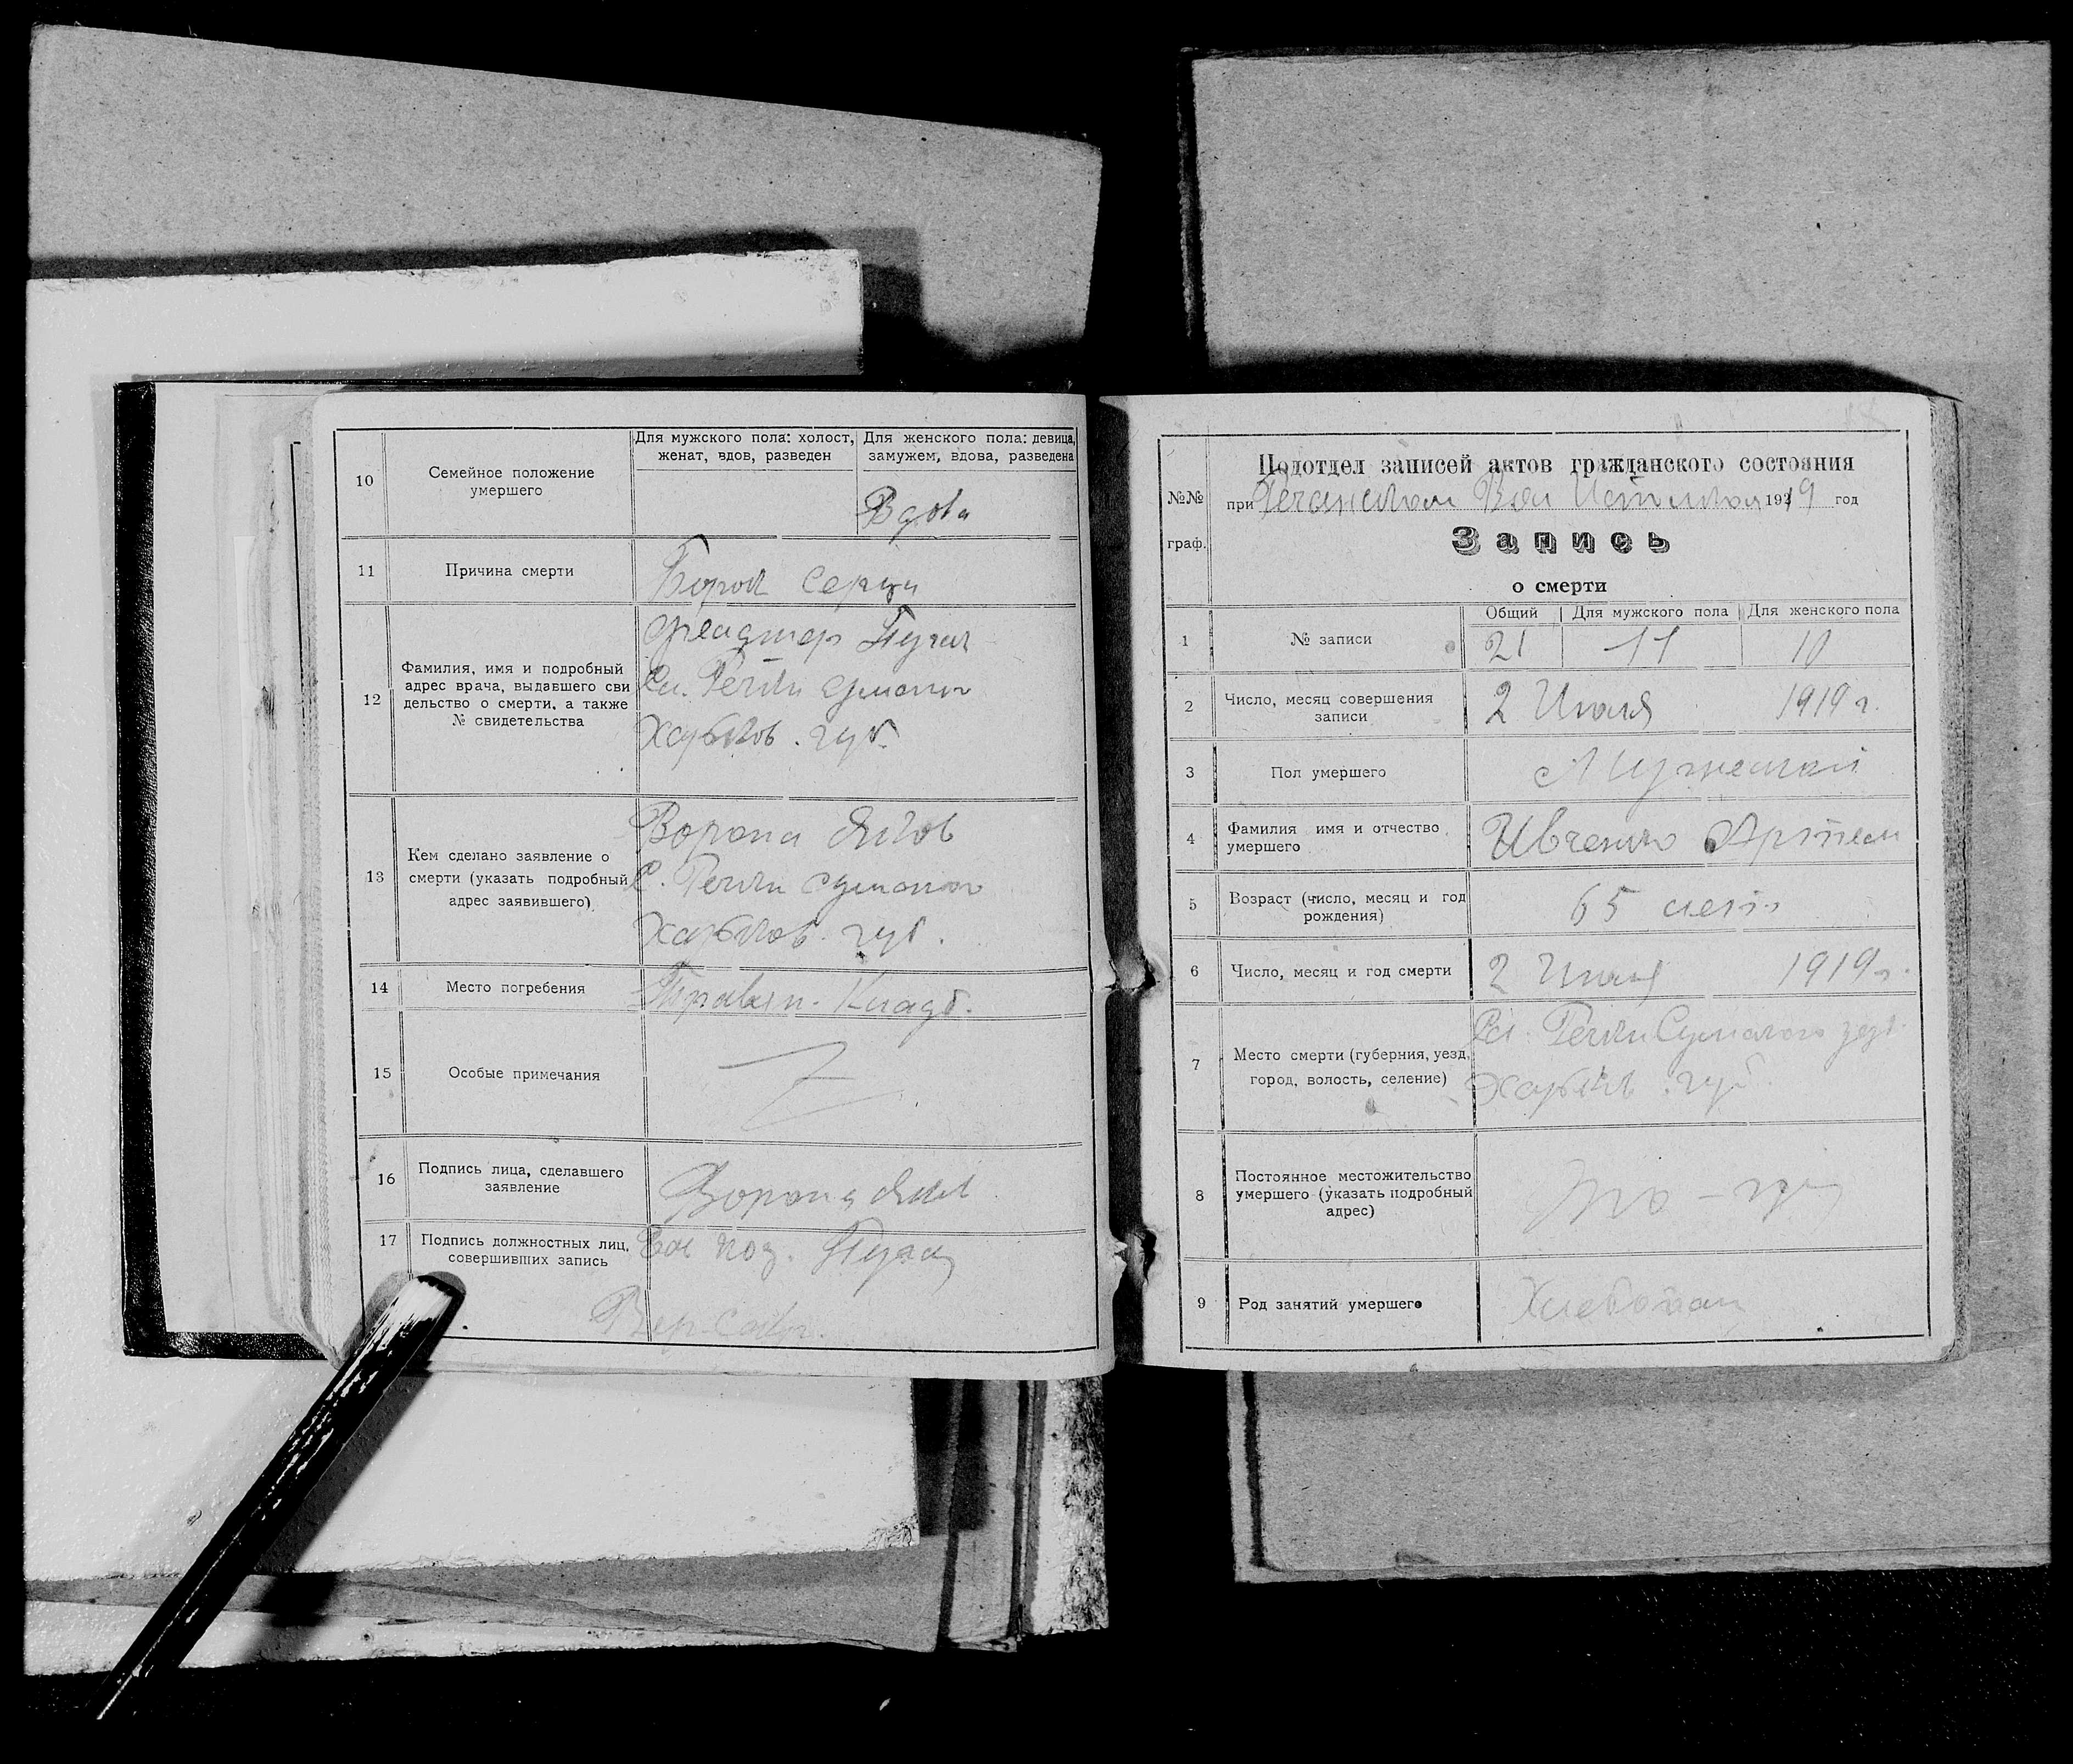 10
Семейное положение
умершего
Для мужского пола: холост,
женат, вдов, разведен
Для женского пола: девица,
замужем, вдова, разведена
Вдова
11
Причина смерти
Порок Серца
12
Фамилия, имя и подробный
адрес врача, выдавшего сви
дельство о смерти, а также
№ свидетельства
Фелдшер
Сл. Речки Сумского
Харьков. губ.
13
Кем сделано заявление о
смерти (указать подробный
адрес заявившего)
Ворона Яков
С. Речки Сумского
Харьков. губ.
14
Место погребения
Правлян. Кладб.
15
Особые примечания
16
Подпись лица, сделавшего
заявление
Ворона Яков
17
Подпись должностных лиц,
совершивших запись
№№
граф.
Подотдел записей актов гражданского состояния
при Речанском Вол Исполком 1919 год
Запись
о смерти
1
№ записи
Общий
Для мужского пола
Для женского пола
21
11
10
2
Число, месяц совершения
записи
2 Июля 1919 г.
3
Пол умершего
Мужской
4
Фамилия имя и отчество
умершего
Ивченко Артем
5
Возраст (число, месяц и год
рождения)
65 лет
6
Число, месяц и год смерти
2 Июля 1919 г.
7
Место смерти (губерния, уезд,
город, волость, селение)
Сл. Речки Сумского уезд.
Харьков. губ.
8
Постоянное местожительство
умершего (указать подробный
адрес)
9
Род занятий умершего
Хлебопаш